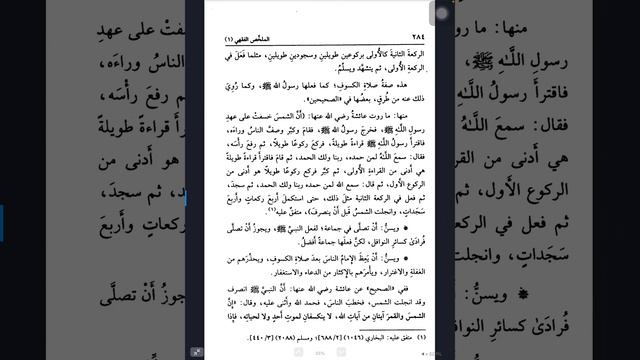 ٢٨٤ الملخّص الفقهي (١)
الركعةَ الثانيةَ كالأُولى بركوعينِ طويلينِ وسجودينِ طويلينِ، مثلما فَعَلَ في
الركعةِ الأُولى، ثم يتشهَّد ويسلِّمُ.
هذه صفةُ صلاةِ الكسوفِ؛ كما فعلها رسولُ اللهِ ﷺ، وكما رُوِيَ
ذلك عنه من طُرقٍ، بعضُها في «الصحيحين».
منها: ما روت عائشةُ رضي الله عنها: (أنَّ الشمسَ خسفتْ على عهدِ
رسولِ اللَّهِ ﷺ، فخرجَ رسولُ الله ﷺ، فقامَ وكبَّر وصفَّ الناسُ وراءَه،
فاقترأَ رسولُ اللَّهِ ﷺ قراءةً طويلةً، فركعَ ركوعًا طويلًا، ثم رفعَ رأسَه،
فقال: سمعَ اللَّهُ لمن حمده، ربنا ولك الحمد، ثم قامَ فاقترأَ قراءةً طويلةً
هي أدنى من القراءةِ الأُولى، ثم كبَّر فركعَ ركوعًا طويلًا هو أدنى من
الركوعِ الأَول، ثم قال: سمع الله لمن حمده ربنا ولك الحمد، ثم سجدَ،
ثم فعل في الركعة الثانية مثلَ ذلك، حتى استكملَ أربعَ ركعاتٍ وأربعَ
سَجَدَاتٍ، وانجلت الشمسُ قبلَ أَنْ ينصرفَ)، متفقٌ عليه(١).
* ويسنُّ: أن تصلَّى في جماعةٍ؛ لفعل النبيِّ ﷺ، ويجوزُ أَنْ تصلَّى
فُرادَىٰ كسائرِ النوافلِ، لكنَّ فعلَها جماعةً أفضلُ.
* ويسنُّ: أن يَعِظَ الإمامُ الناسَ بعدَ صلاةِ الكسوفِ، ويحذِّرَهم من
الغفلةِ والاغترارِ، ويأمرَهم بالإكثارِ من الدعاءِ والاستغفارِ.
ففي «الصحيح» عن عائشة رضي الله عنها: أنَّ النبيَّ ﷺ انصرف
وقد انجلت الشمس، فخطبَ الناسَ، فحمد اللهَ وأثنى عليه، وقال: «إنَّ
الشمسَ والقمرَ آيتانِ من آياتِ الله، لا ينكسفانِ لموتِ أحدٍ ولا لحياتِه، فإذا
(١) متفق عليه: البخاري (١٠٤٦) [٦٨٨/٢]؛ ومسلم (٢٠٨٨) [٤٤٠/٣].